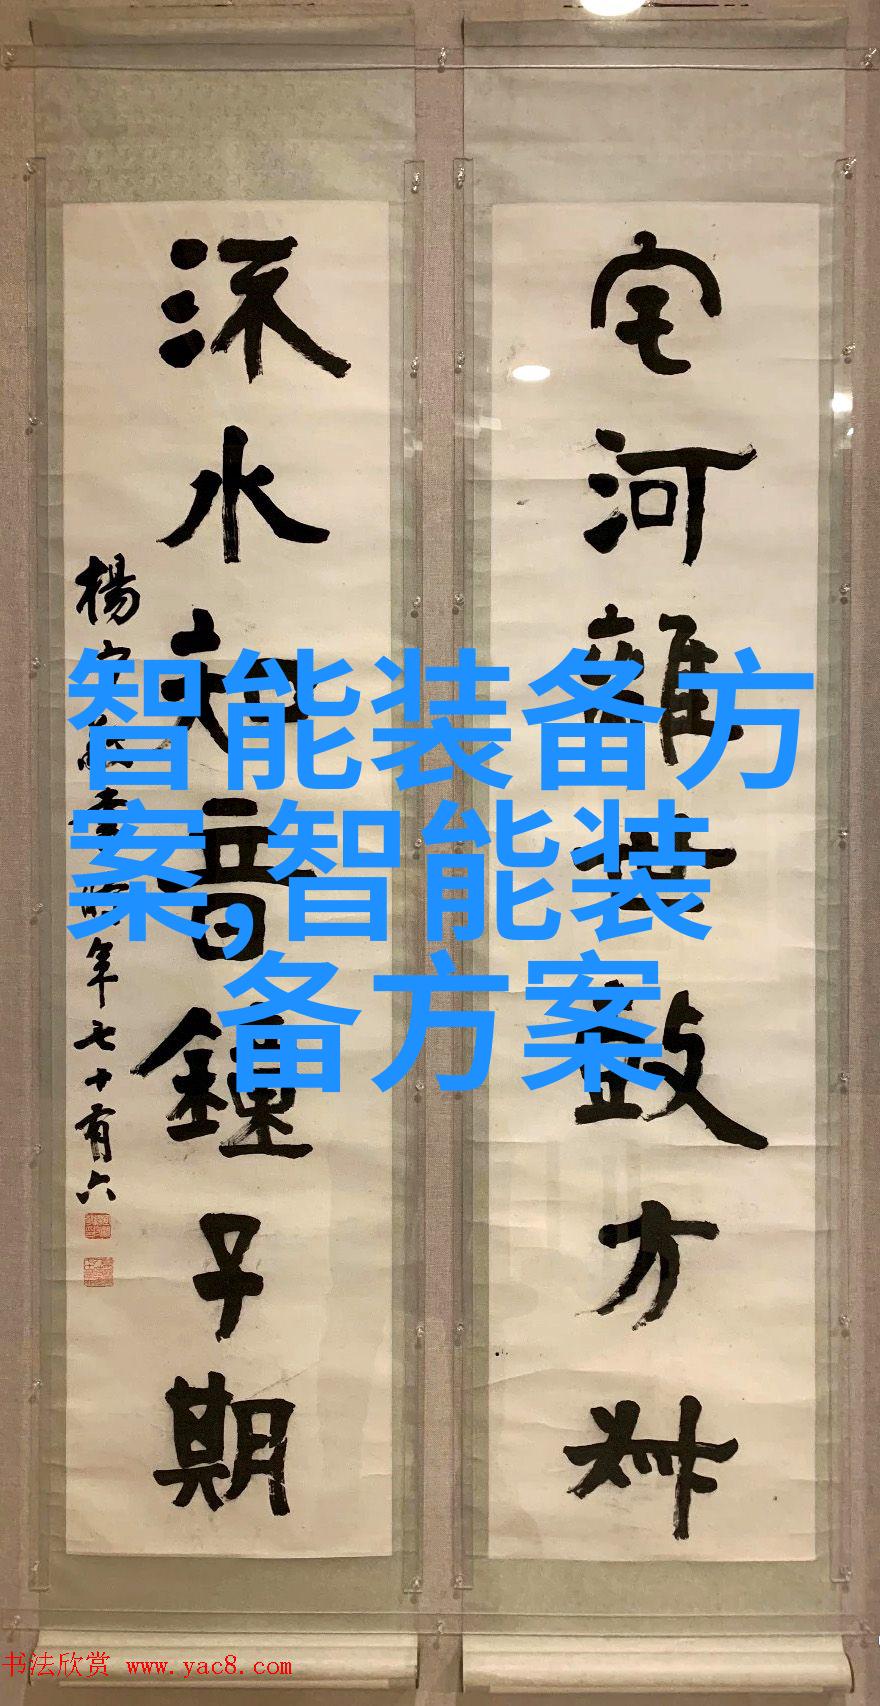 宅河離世鼓方叔
流水知音鍾子期
楊守敬書時年七十有六
智能装备方
案,智能装
备方案
书法欣赏 www.yac8.com